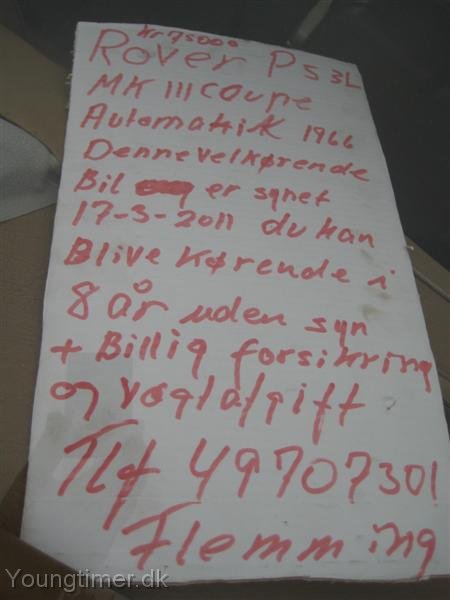 kr 75000
Rover P5 3L
MK III coupe
Automatik 1966
Dennevelkørende
Bil er synet
17-3-2011 du kan
Blive kørende i
8 år uden syn
+ Billig forsikring
og vægtafgift
Tlf 49707301
Flemming
Youngtimer.dk